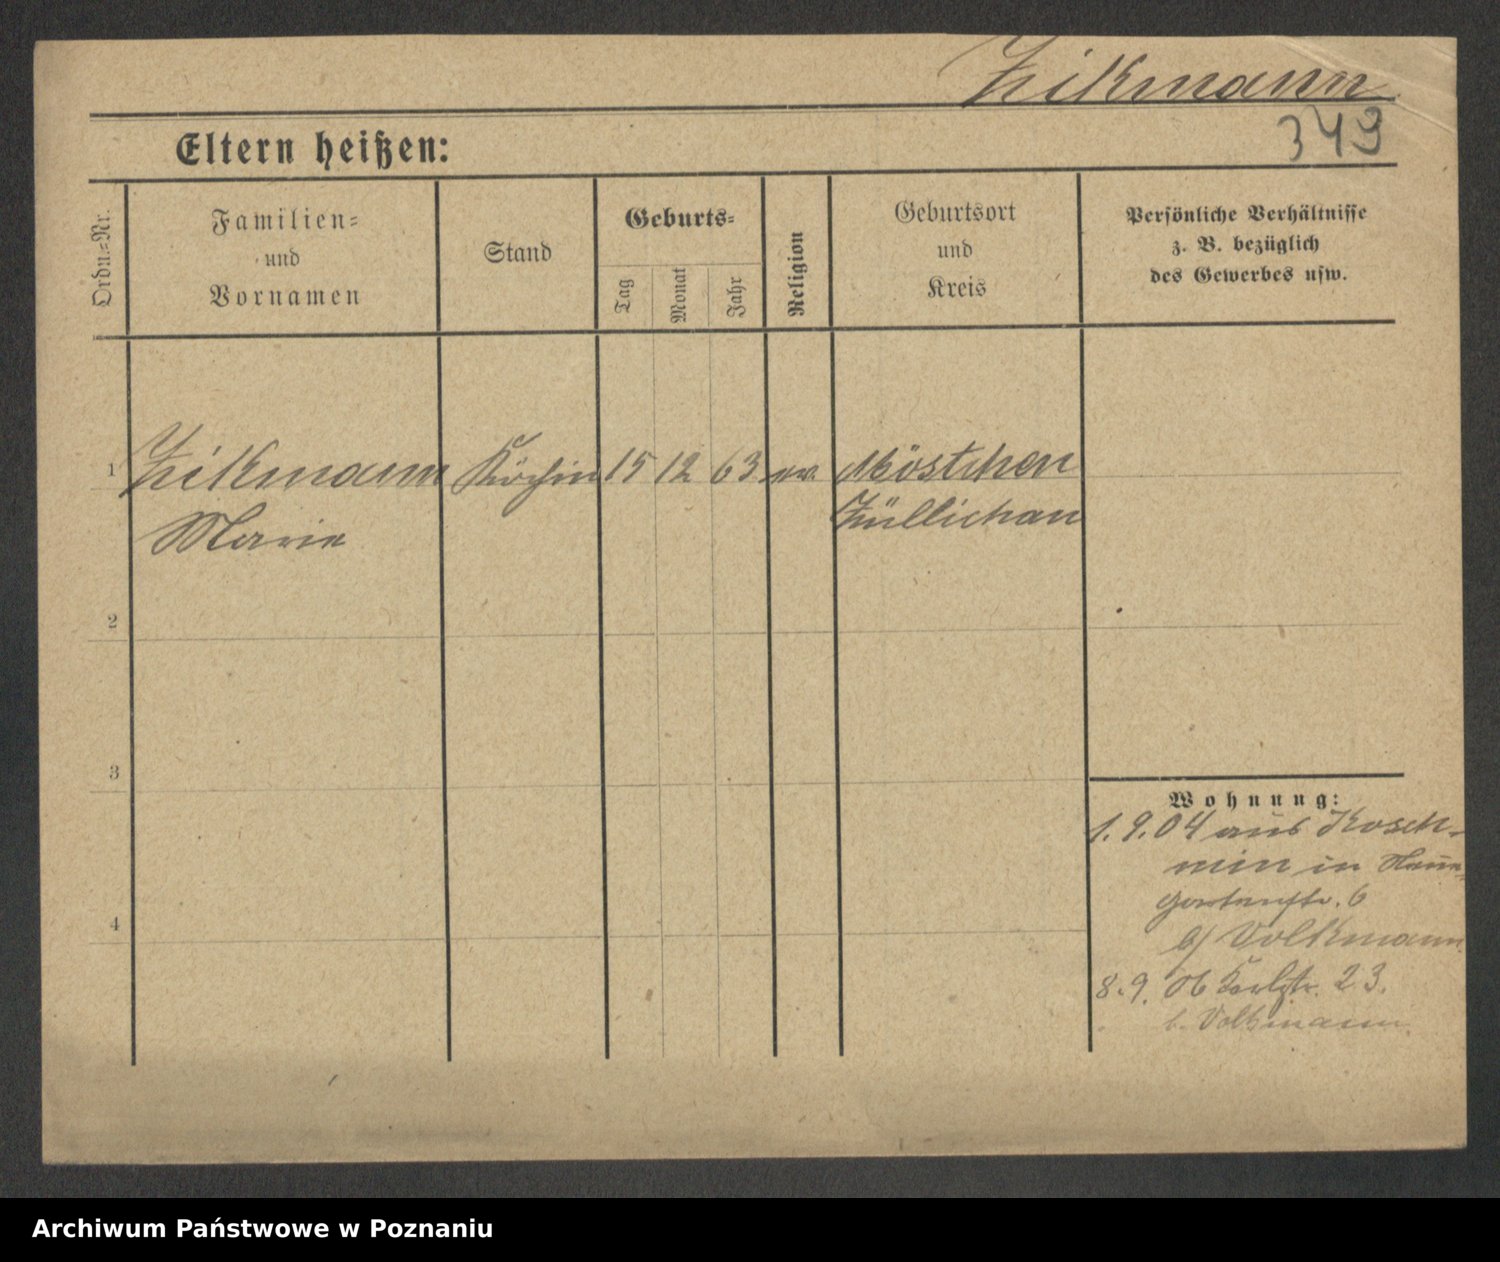 Zeikmann
349
Eltern heißen:
Ordn.=Nr.
Familien=
und
Vornamen
Stand
Geburts=
Tag
Monat
Jahr
Religion
Geburtsort
und
Kreis
Persönliche Verhältnisse
z. B. bezüglich
des Gewerbes usw.
1 Zeikmann Köchin 15 12 63 ev. Möstchen
Marie Züllichau
2
3
4
Wohnung:
1. 9. 04 aus Kosch-
min in
gartenstr. 6
b/ Volkmann
8. 9. 06 Karlstr. 23.
b. Volkmann.
Archiwum Państwowe w Poznaniu